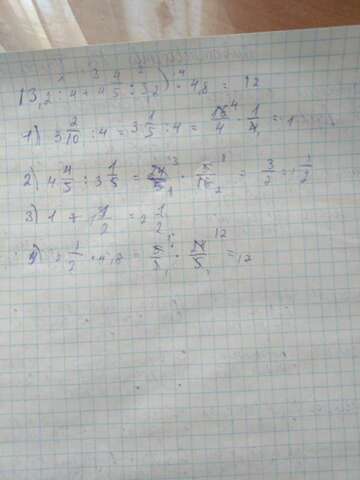 (3,2 : 4 + 4 4/5 : 3,2) · 4,8 = 12
1) 3 2/10 : 4 = 3 1/5 : 4 = 16/4 · 1/4 = 1
2) 4 4/5 : 3 1/5 = 24/5 · 5/16 = 3/2 = 1 1/2
3) 1 + 1 1/2 = 2 1/2
4) 2 1/2 · 4,8 = 5/2 · 24/5 = 12